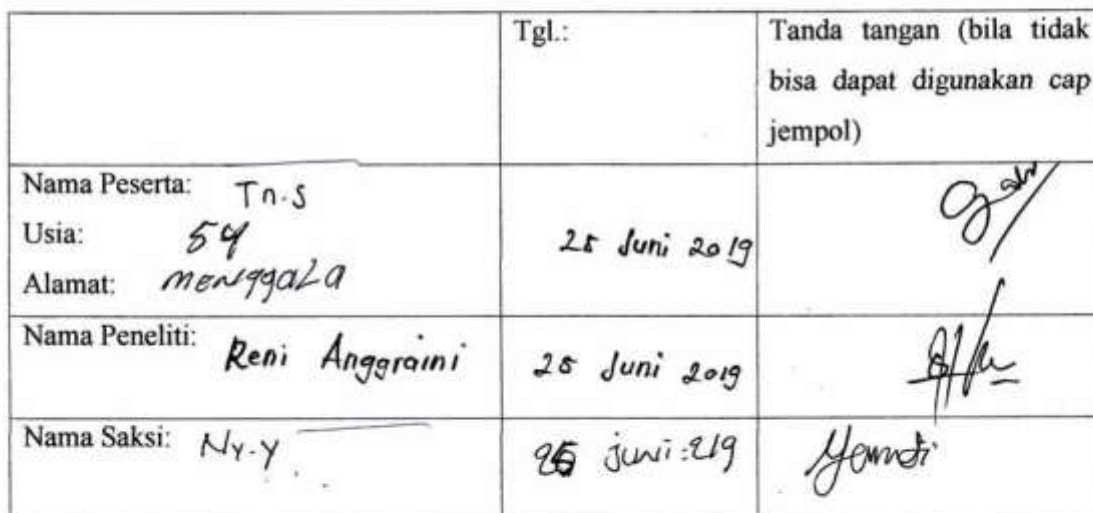 Tgl.:
Tanda tangan (bila tidak
bisa dapat digunakan cap
jempol)
Nama Peserta: Tn.S
Usia: 54
Alamat: MENggaLa
25 Juni 2019
Nama Peneliti: Reni Anggraini
25 Juni 2019
Nama Saksi: Ny.Y
25 juni:219